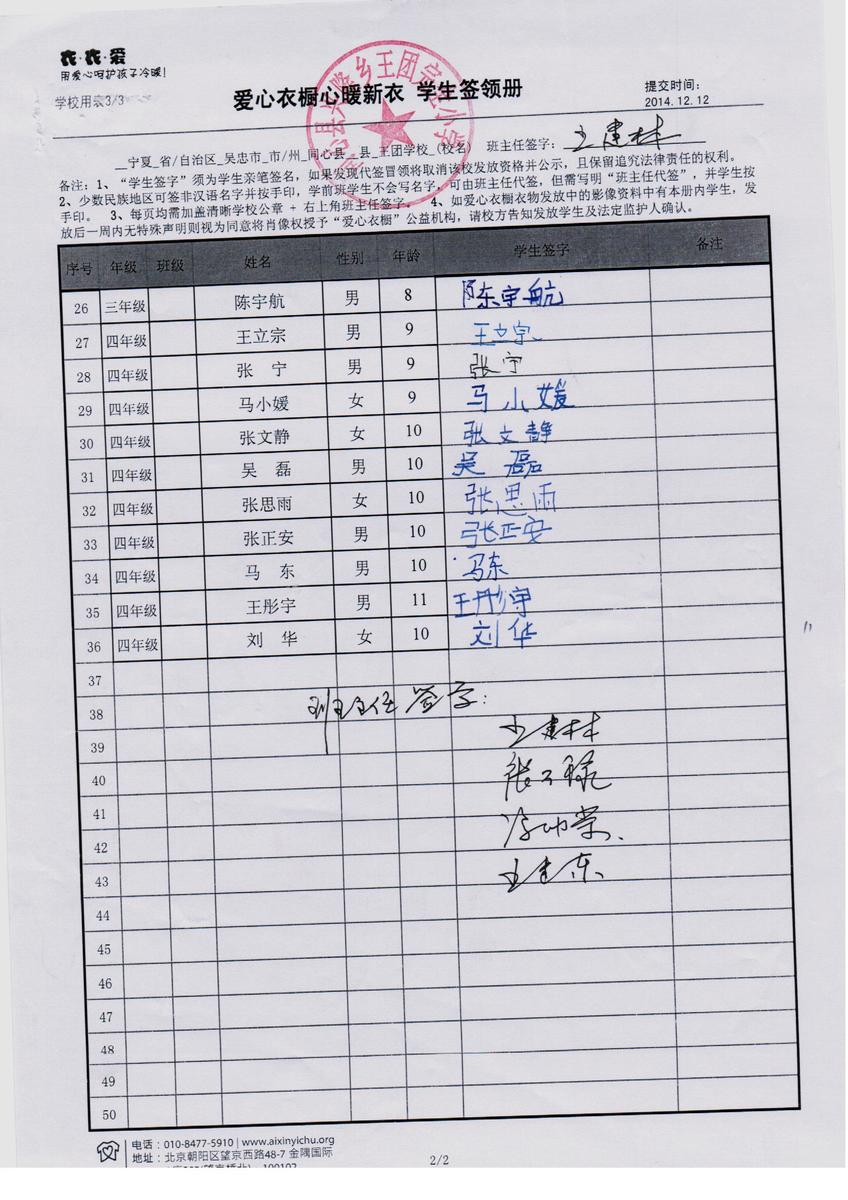 衣·衣·爱
用爱心呵护孩子冷暖!
学校用表3/3
爱心衣橱心暖新衣 学生签领册
提交时间:
2014.12.12
__宁夏_省/自治区_吴忠市_市/州_同心县__县_王团学校_(校名) 班主任签字: 王建林
备注: 1、“学生签字”须为学生亲笔签名,如果发现代签冒领将取消该校发放资格并公示,且保留追究法律责任的权利。
2、少数民族地区可签非汉语名字并按手印,学前班学生不会写名字,可由班主任代签,但需写明“班主任代签”,并学生按
手印。 3、每页均需加盖清晰学校公章 + 右上角班主任签字。 4、如爱心衣橱衣物发放中的影像资料中有本册内学生,发
放后一周内无特殊声明则视为同意将肖像权授予“爱心衣橱”公益机构,请校方告知发放学生及法定监护人确认。
序号 年级 班级 姓名 性别 年龄 学生签字 备注
26 三年级 陈宇航 男 8 陈宇航
27 四年级 王立宗 男 9 王立宗
28 四年级 张 宁 男 9 张宁
29 四年级 马小媛 女 9 马小媛
30 四年级 张文静 女 10 张文静
31 四年级 吴 磊 男 10 吴磊
32 四年级 张思雨 女 10 张思雨
33 四年级 张正安 男 10 张正安
34 四年级 马 东 男 10 马东
35 四年级 王彤宇 男 11 王彤宇
36 四年级 刘 华 女 10 刘华
37
38 班主任签字:
39 王建林
40
41
42
43 王建东
44
45
46
47
48
49
50
电话: 010-8477-5910 | www.aixinyichu.org
地址: 北京朝阳区望京西路48-7 金隅国际
2/2